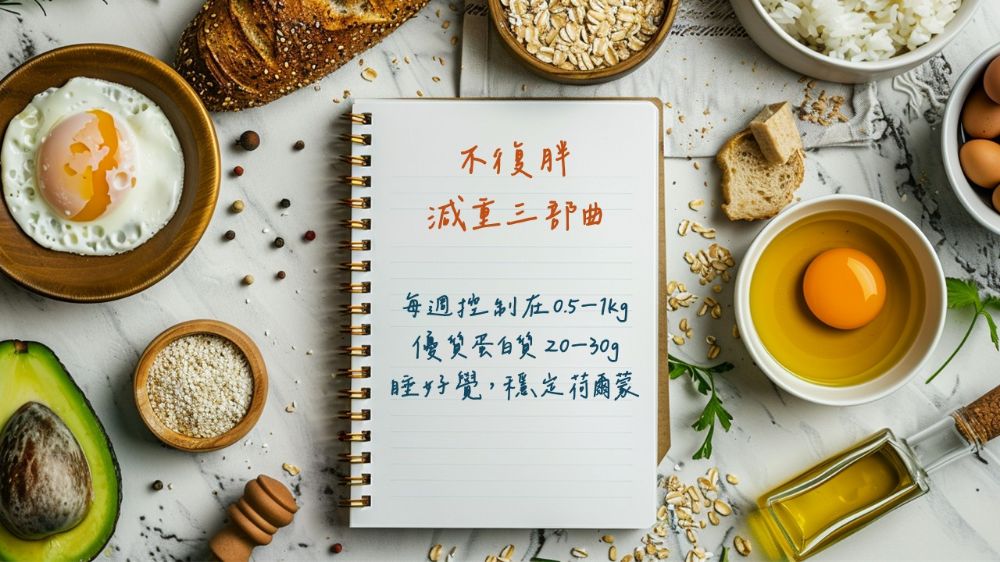 不復胖
減重三部曲
每週控制在0.5-1kg
優質蛋白質20-30g
睡好覺，穩定荷爾蒙